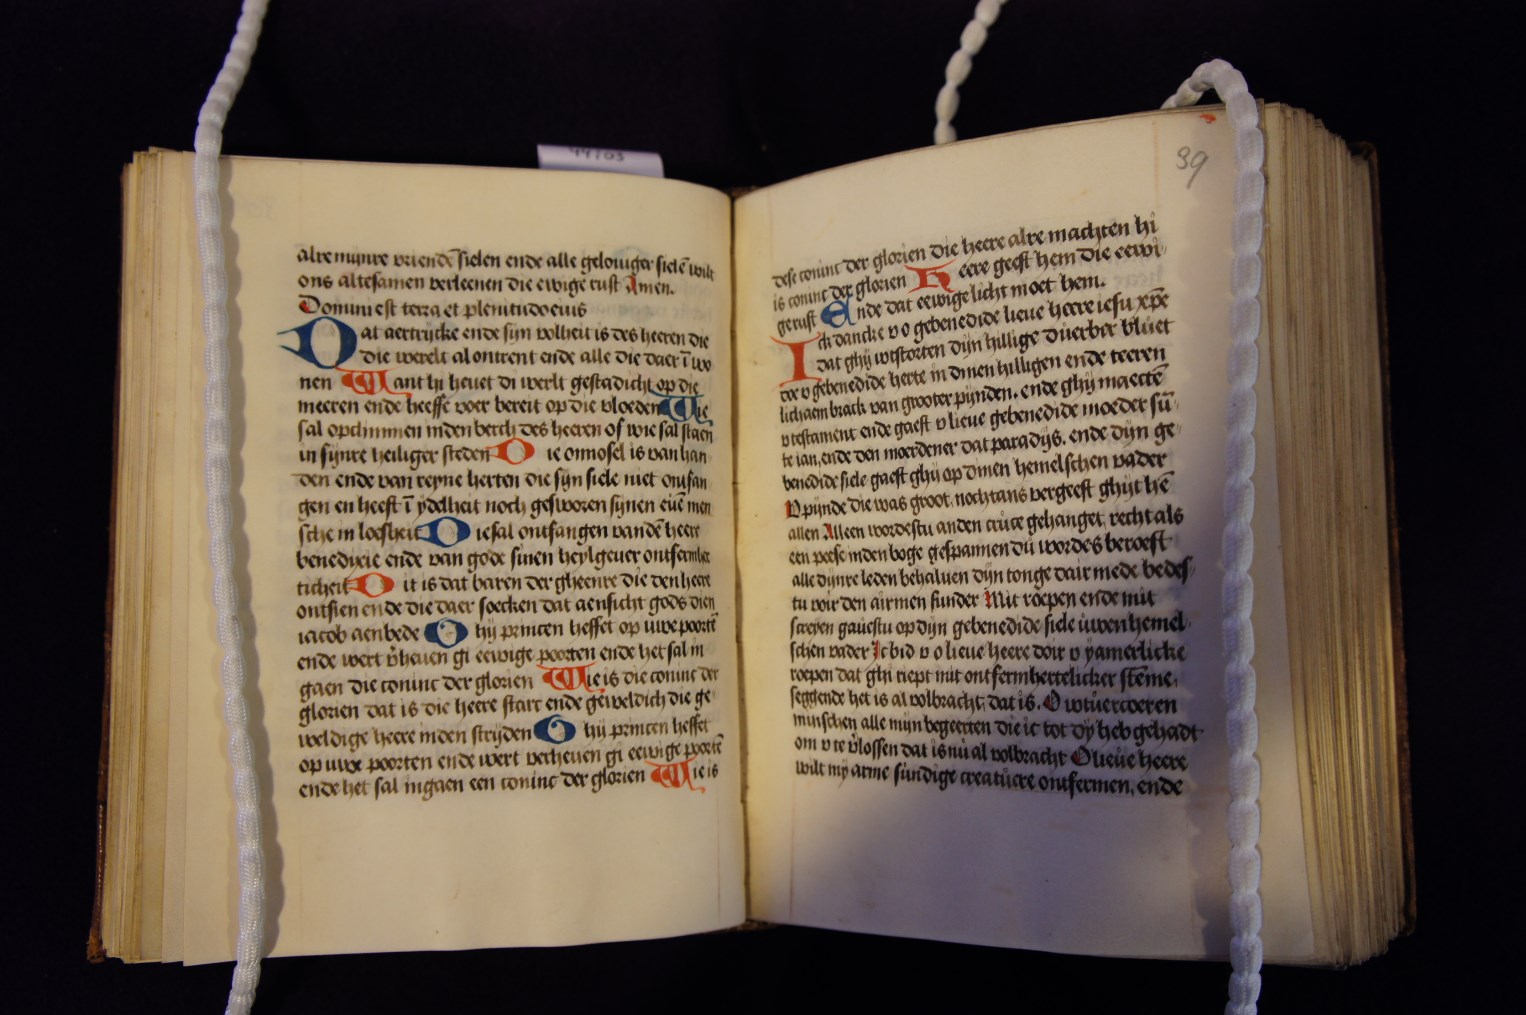 alre mijnre vriende sielen ende alle geloviger sielē wilt
ons altesamen verleenen die ewige rust Amen.
Domini est terra et plenitudo eius
Dat aertrijcke ende sijn volheit is des heeren die
die werelt al ontrent ende alle die daer ī wo
nen Want hi hevet di werlt gestadicht op die
meeren ende heeffe voer bereit op die vloeden Wie
sal opclimmen inden berch des heeren of wie sal staen
in sijnre heiliger steden Die onnosel is van han
den ende van reyne herten die sijn siele niet ontfan
gen en heeft ī ydelheit noch gesworen sijnen euē men
sche in loesheit Die sal ontfangen vandē heere
benedixie ende van gode sinen heylgever ontfermher
ticheit Dit is dat baren der gheenre die den heere
ontsien ende die daer soecken dat aensicht gods dien
iacob aenbede O hij princen heffet op uwe poortē
ende wert v̄heven gi eewige poorten ende het sal in
gaen die coninc der glorien Wie is die coninc der
glorien dat is die heere starc ende geweldich die ge
weldige heere inden strijden O hij princen heffet
op uwe poorten ende wert verheven gi eewige poortē
ende het sal ingaen een coninc der glorien Wie is
44703
39
dese coninc der glorien die heere alre machten hi
is coninc der glorien Heere geeft hem die eewi
ge rust Ende dat eewige licht moet hem.
Ick dancke v o gebenedide lieve heere iesu xp̄e
dat ghij wtstorten dijn hillige dierber bluet
doe v gebenedide herte in dinen hilligen ende teeren
lichaem brack van grooter pijnden. ende ghij maectē
v testament ende gaeft v lieve gebenedide moeder sū
te ian. ende den moerdener dat paradijs. ende dijn ge
benedide siele gaeft ghij op dinen hemelschen vader
V pijnde die was groot. nochtans vergeeft ghijt hē
allen Alleen wordestu anden cruce gehanget, recht als
een peese inden boge gespannen du wordes beroeft
alle dijnre leden behalven dijn tonge dair mede bedes
tu voir den airmen sunder Mit roepen ende mit
screyen gavestu op dijn gebenedide siele uwen hemel
schen vader Ic bid v o lieve heere doir v yamerlicke
roepen dat ghi riept mit ontfermhertelicker stēme,
seggende het is al volbracht, dat is. O wtvercoren
minschen alle mijn begeerten die ic tot dy heb gehadt
om v te v̄lossen dat is nu al volbracht O lieve heere
wilt my arme sundige creatuere ontfermen, ende